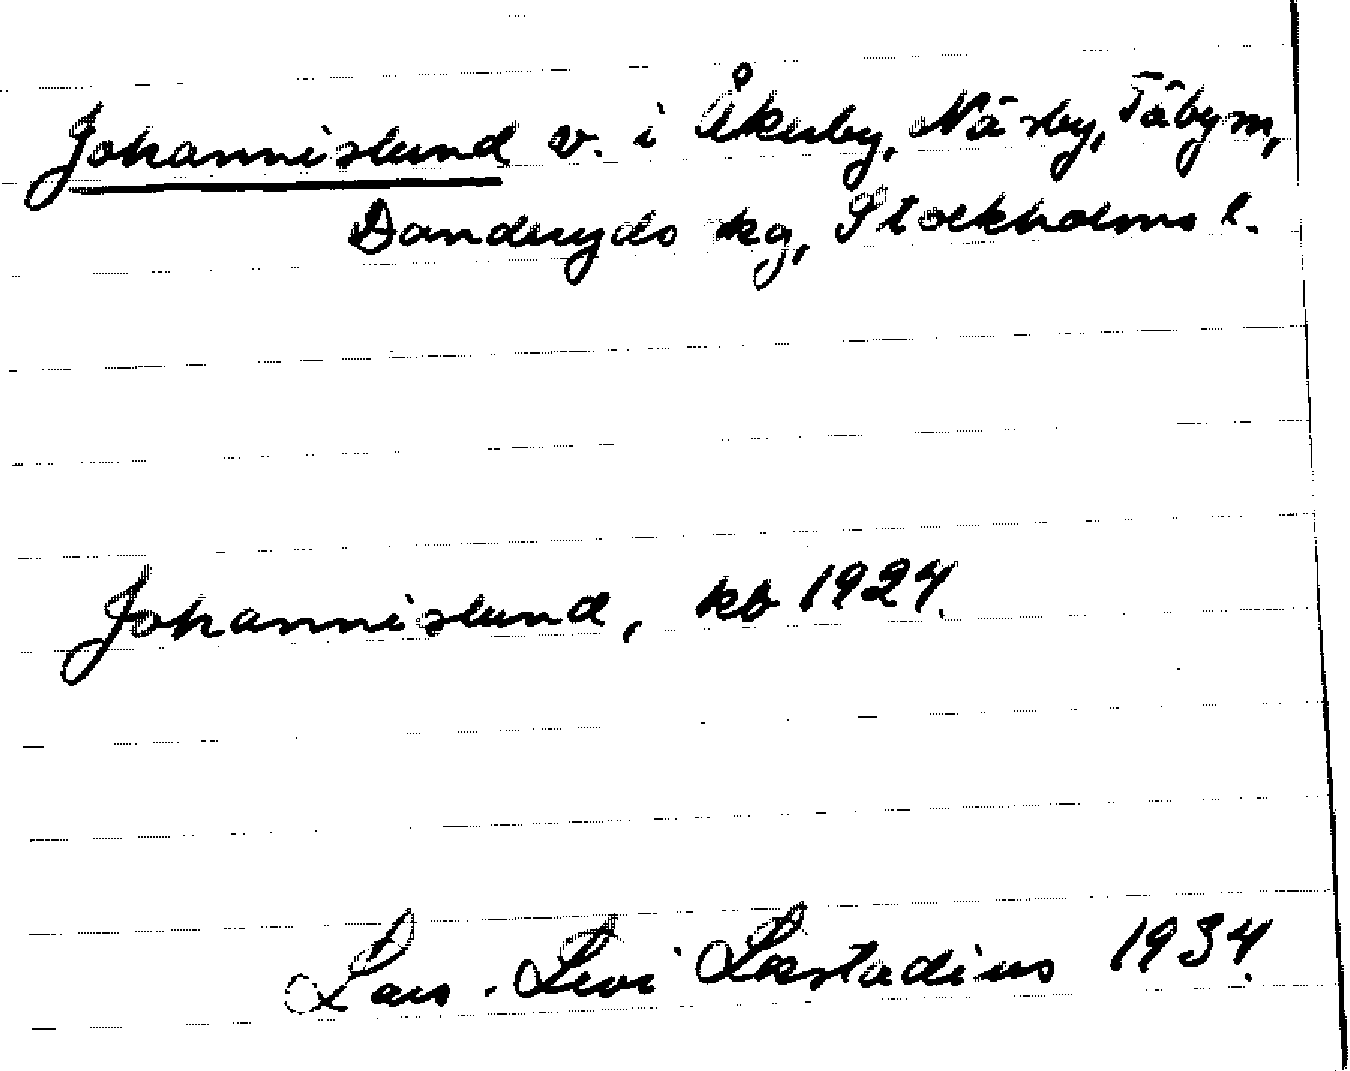 Johannislund v. i Åkerby, Näsby, Täby sn,
Danderyds kg, Stockholms l.
Johannislund, kb 1924.
Lars-Levi Læstadius 1934.